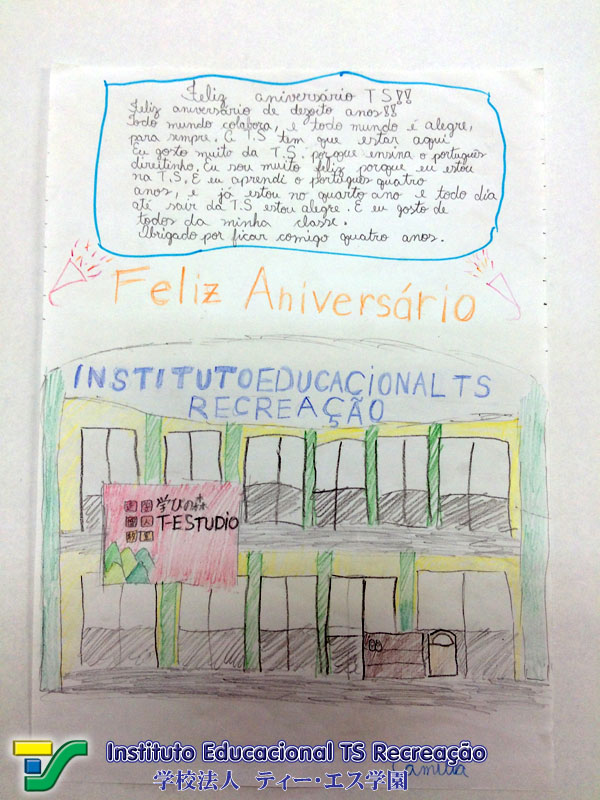 Feliz aniversário TS!!
Feliz aniversário de dezoito anos!!
Todo mundo colabora, e todo mundo é alegre,
para sempre. E T.S tem que estar aqui
Eu gosto muito da T.S. porque ensina o português
direitinho. Eu sou muito feliz porque eu estou
na T.S. E eu aprendi o português quatro
anos, e já estou no quarto ano e todo dia
até sair da T.S estou alegre. E eu gosto de
todos da minha classe.
Obrigado por ficar comigo quatro anos.
Feliz Aniversário
INSTITUTO EDUCACIONAL TS
RECREAÇÃO
学びの森
T-ESTUDIO
Instituto Educacional TS Recreação
学校法人 ティー・エス学園